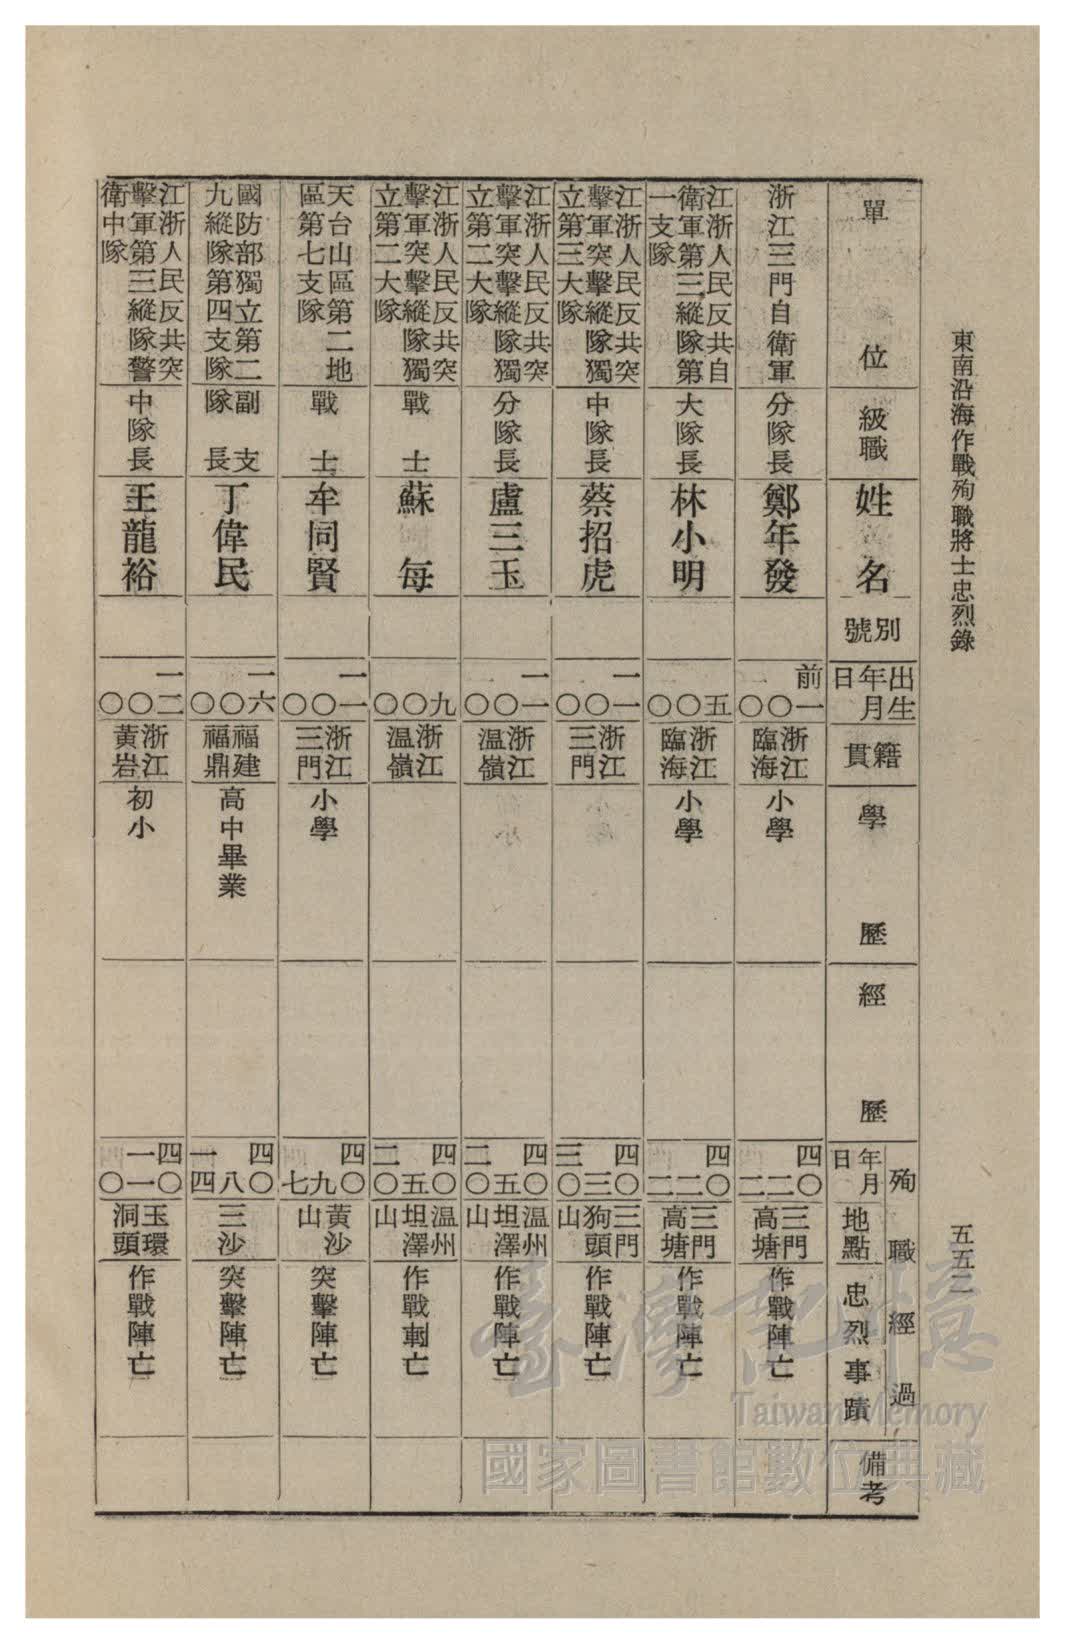 東南沿海作戰殉職將士忠烈錄
五五二
單位
級職
姓名
別號
出生年月日
籍貫
學歷
經歷
殉職經過
年月日
地點
忠烈事蹟
備考
浙江三門自衛軍
分隊長
鄭年發
前一
〇〇
浙江
臨海
小學
四〇
二
二
三門
高塘
作戰陣亡
江浙人民反共自
衛軍第三縱隊第
一支隊
大隊長
林小明
五
〇
〇
浙江
臨海
小學
四〇
二
二
三門
高塘
作戰陣亡
江浙人民反共突
擊軍突擊縱隊獨
立第三大隊
中隊長
蔡招虎
一一
〇
〇
浙江
三門
四〇
三
三〇
三門
狗頭
山
作戰陣亡
江浙人民反共突
擊軍突擊縱隊獨
立第二大隊
分隊長
盧三玉
一一
〇
〇
浙江
溫嶺
四〇
五
二〇
溫州
坦澤
山
作戰陣亡
江浙人民反共突
擊軍突擊縱隊獨
立第二大隊
戰士
蘇每
九
〇
〇
浙江
溫嶺
四〇
五
二〇
溫州
坦澤
山
作戰陣亡
天台山區第二地
區第七支隊
戰士
牟同賢
一一
〇
〇
浙江
三門
小學
四〇
九
七
黃沙
山
突擊陣亡
國防部獨立第二
九縱隊第四支隊
副支
隊長
丁偉民
一六
〇
〇
福建
福鼎
高中畢業
四〇
八
一四
三沙
突擊陣亡
江浙人民反共突
擊軍第三縱隊警
衛中隊
中隊長
王龍裕
一二
〇
〇
浙江
黃岩
初小
四〇
一一
一〇
玉環
洞頭
作戰陣亡
臺灣記憶
Taiwan Memory
國家圖書館數位典藏